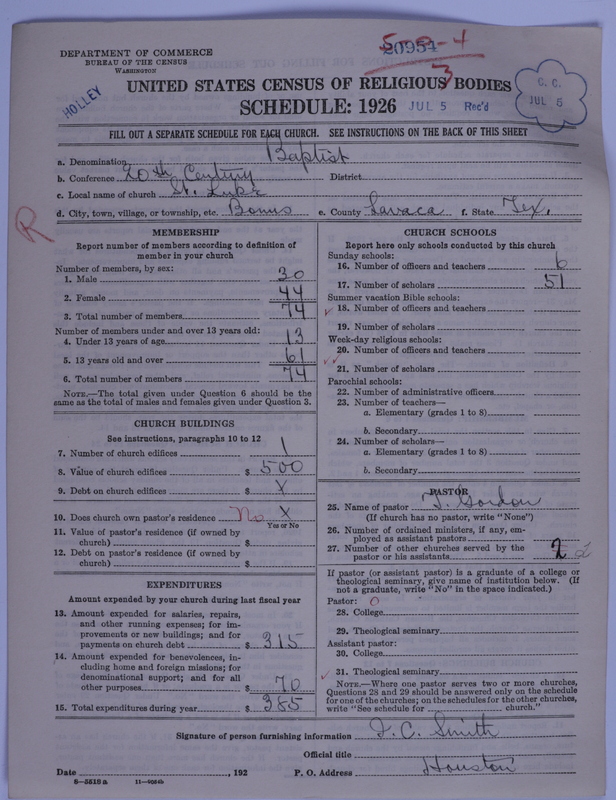 20954
500-4
3
DEPARTMENT OF COMMERCE
BUREAU OF THE CENSUS
WASHINGTON
HOLLEY
C. C.
JUL 5
UNITED STATES CENSUS OF RELIGIOUS BODIES
SCHEDULE: 1926 JUL 5 Rec'd
FILL OUT A SEPARATE SCHEDULE FOR EACH CHURCH. SEE INSTRUCTIONS ON THE BACK OF THIS SHEET
a. Denomination Baptist
b. Conference 20th Century District
c. Local name of church St. Luke
d. City, town, village, or township, etc. Bonus e. County Lavaca f. State Tex.
R
MEMBERSHIP
Report number of members according to definition of
member in your church
Number of members, by sex:
1. Male 30
2. Female 44
3. Total number of members 74
Number of members under and over 13 years old:
4. Under 13 years of age 13
5. 13 years old and over 61
6. Total number of members 74
NOTE.—The total given under Question 6 should be the
same as the total of males and females given under Question 3.
CHURCH BUILDINGS
See instructions, paragraphs 10 to 12
7. Number of church edifices 1
8. Value of church edifices $ 500
9. Debt on church edifices $ X
10. Does church own pastor's residence No X
Yes or No
11. Value of pastor's residence (if owned by
church) $
12. Debt on pastor's residence (if owned by
church) $
EXPENDITURES
Amount expended by your church during last fiscal year
13. Amount expended for salaries, repairs,
and other running expenses; for im-
provements or new buildings; and for
payments on church debt $ 315
14. Amount expended for benevolences, in-
cluding home and foreign missions; for
denominational support; and for all
other purposes $ 70
15. Total expenditures during year $ 385
CHURCH SCHOOLS
Report here only schools conducted by this church
Sunday schools:
16. Number of officers and teachers 6
17. Number of scholars 51
Summer vacation Bible schools:
18. Number of officers and teachers
19. Number of scholars
Week-day religious schools:
20. Number of officers and teachers
21. Number of scholars
Parochial schools:
22. Number of administrative officers
23. Number of teachers—
a. Elementary (grades 1 to 8)
b. Secondary
24. Number of scholars—
a. Elementary (grades 1 to 8)
b. Secondary
PASTOR
25. Name of pastor T. Gordon
(If church has no pastor, write "None")
26. Number of ordained ministers, if any, em-
ployed as assistant pastors
27. Number of other churches served by the
pastor or his assistants 2 2
If pastor (or assistant pastor) is a graduate of a college or
theological seminary, give name of institution below. (If
not a graduate, write "No" in the space indicated.)
Pastor: 0
28. College
29. Theological seminary
Assistant pastor:
30. College
31. Theological seminary
NOTE.—Where one pastor serves two or more churches,
Questions 28 and 29 should be answered only on the schedule
for one of the churches; on the schedules for the other churches,
write "See schedule for church."
Signature of person furnishing information J. C. Smith
Official title
Date , 192 P. O. Address Houston
8—5518 a 11—9054b